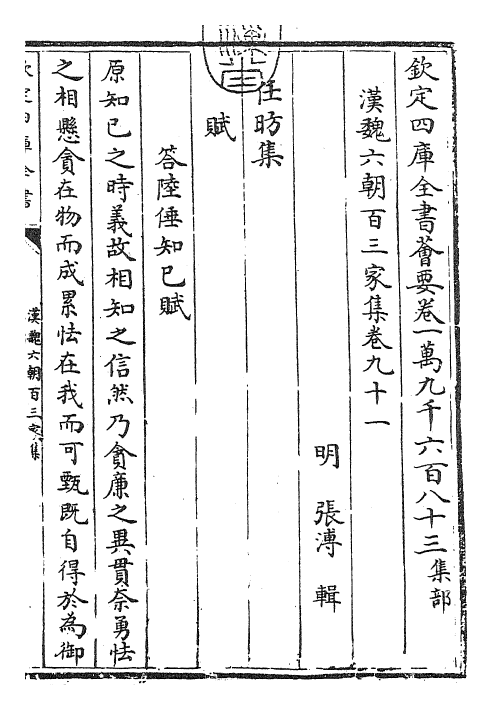 欽定四庫全書薈要卷一萬九千六百八十三集部
漢魏六朝百三家集卷九十一
明 張溥 輯
任昉集
賦
答陸倕知己賦
原知已之時義故相知之信然乃貪廉之異貫奈勇怯
之相懸貪在物而成累怯在我而可甄既自得於為御
欽定四庫全書
漢魏六朝百三家集